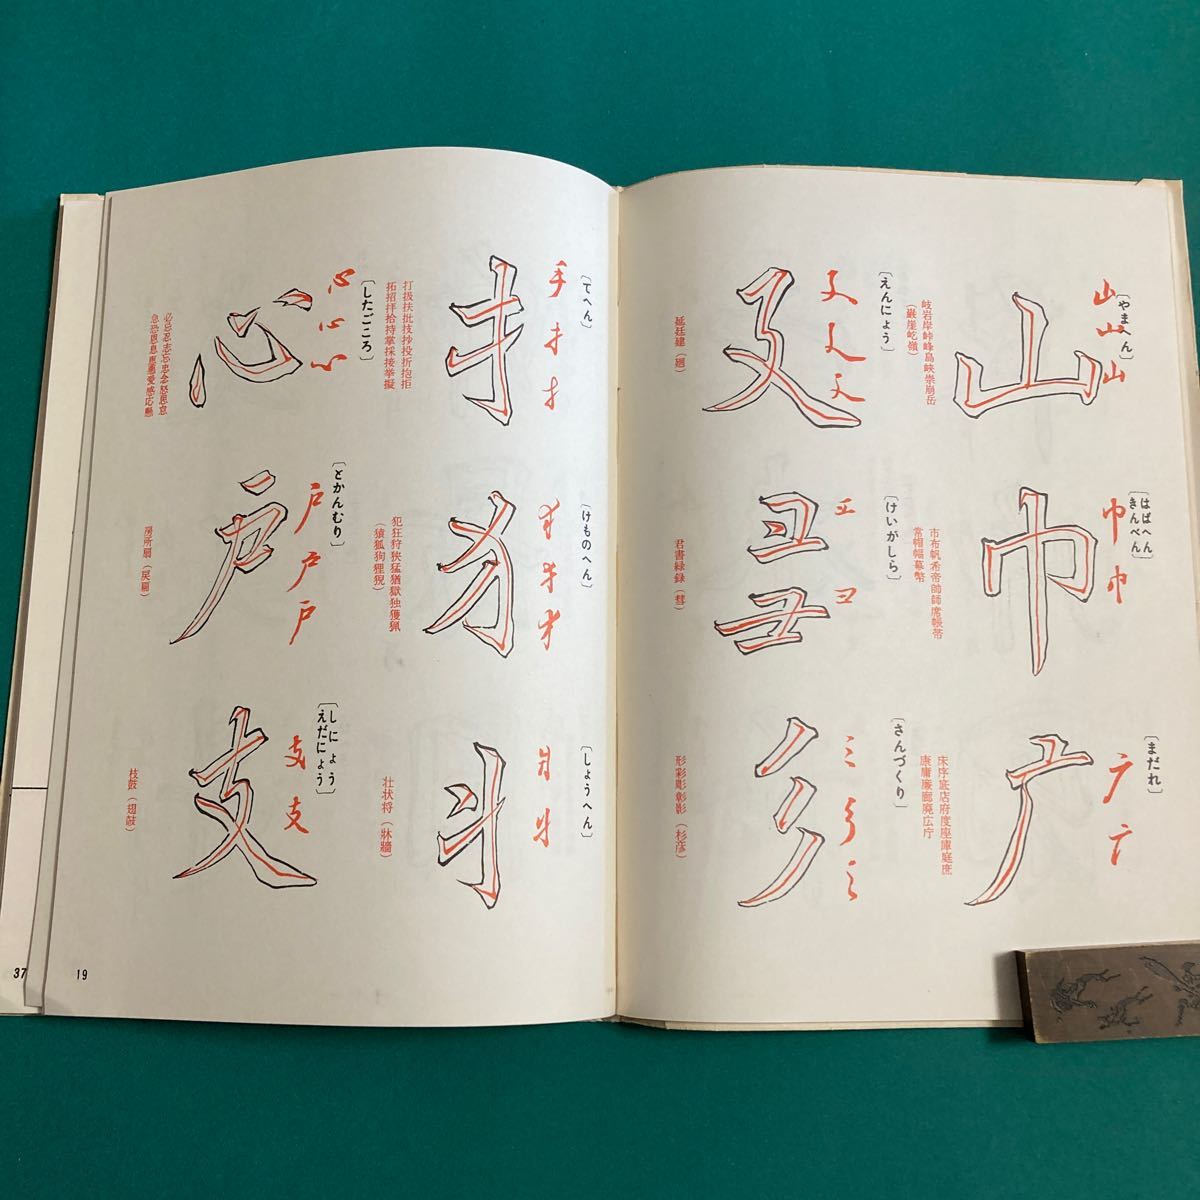 〔やまへん〕
山山山
山
岐岩岸峠峰島峡崇崩岳
(巌崖屹嶺)
〔はばへん
きんべん〕
巾巾
巾
市布帆希帝帥師席帳帯
常帽幅幕幣
〔まだれ〕
广广
广
床序底店府度座庫庭庶
康庸廉廊廃広庁
〔えんにょう〕
廴廴廴
廴
延廷建(廻)
〔けいがしら〕
彑ヨ
彑
君書緑録(彗)
〔さんづくり〕
彡彡彡
彡
形彩彫彰影(杉彦)
〔てへん〕
手扌扌
扌
打扱扶批技抄投折抱拒
拓招拝拾持掌採接挙擬
〔けものへん〕
犭犭犭
犭
犯狂狩狭猛猶獄独獲猟
(猿狐狗狸猊)
〔しょうへん〕
爿丬
丬
壮状将(牀牆)
〔したごころ〕
心心心
心
必忌忍志忘忠念怒思怠
急恐恩息悪憂愛感応懸
〔とかんむり〕
戸戸戸
戸
房所扇(戻扁)
〔しにょう
えだにょう〕
支支
支
枝鼓(翅歧)
19
37